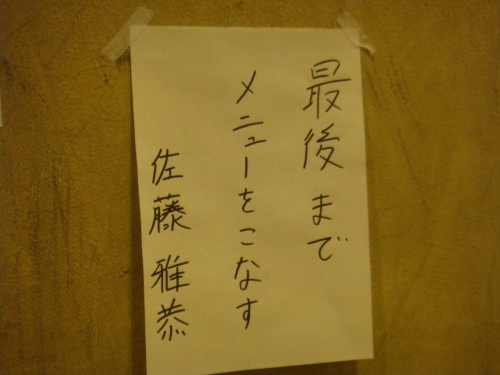 最後まで
メニューをこなす
佐藤雅恭